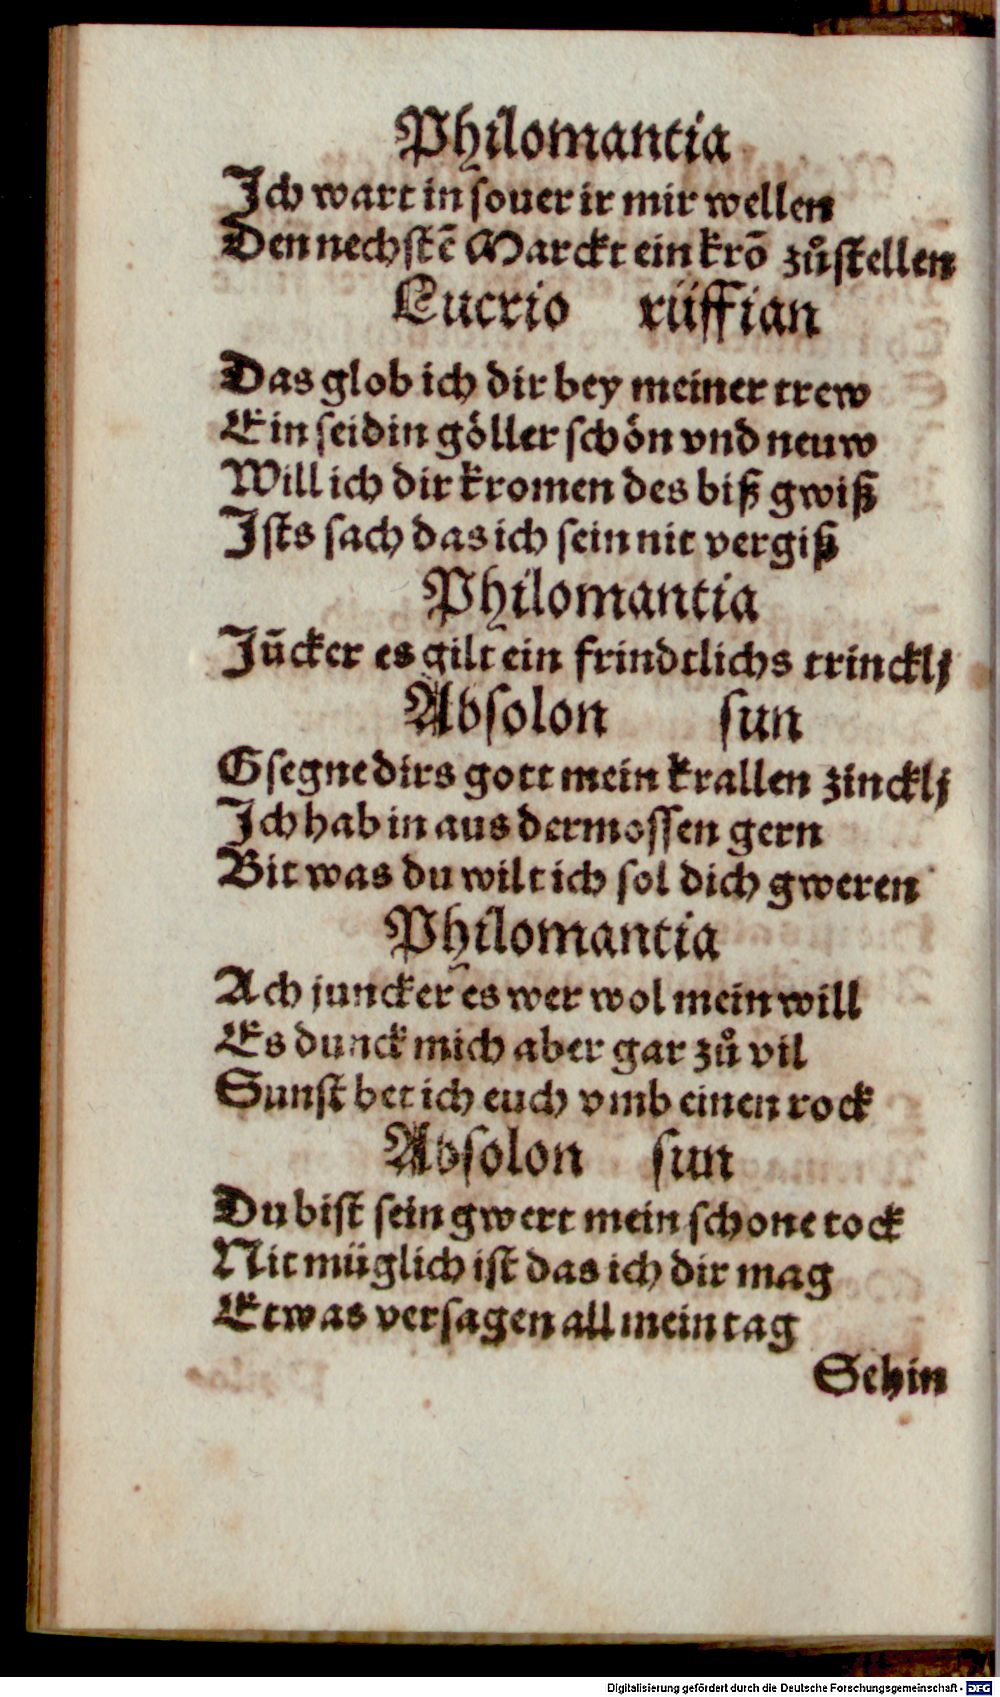 Philomantia
Ich wart in souer ir mir wellen
Den nechstē Marckt ein krō zůstellen
Lucrio rüffian
Das glob ich dir bey meiner trew
Ein seidin göller schön vnd neuw
Will ich dir kromen des biß gwiß
Ists sach das ich sein nit vergiß
Philomantia
Jūcker es gilt ein frindtlichs trincklj
Absolon sun
Gsegne dirs gott mein krallen zincklj
Ich hab in aus dermossen gern
Bit was du wilt ich sol dich gweren
Philomantia
Ach juncker es wer wol mein will
Es dunck mich aber gar zů vil
Sunst bet ich euch vmb einen rock
Absolon sun
Du bist sein gwert mein schone tock
Nit müglich ist das ich dir mag
Etwas versagen all mein tag
Sehin
Digitalisierung gefördert durch die Deutsche Forschungsgemeinschaft - DFG